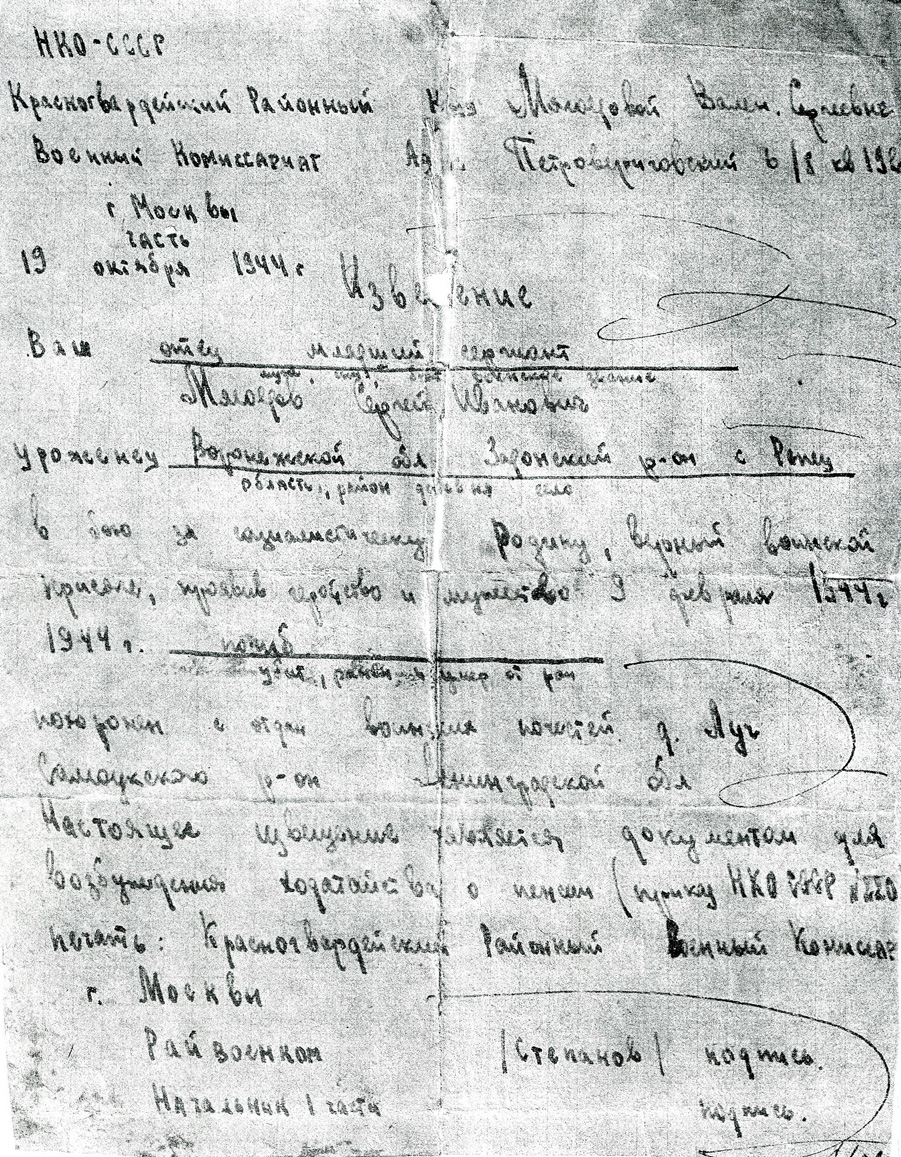 НКО-СССР
Красногвардейский Районный Мясоедовой Вален. Сергеевне
Военный Комиссариат Петроверигский 6/8 кв 198
г. Москвы
часть
19 октября 1944 г
Извещение
Ваш отец младший сержант
муж, сын, брат воинское звание
Мясоедов Сергей Иванович
Уроженец Воронежской обл Задонский р-он с Репец
область, район деревня село
в бою за социалистическую Родину, верный воинской
присяге, проявив геройство и мужество 9 февраля 1944 г
1944 г. погиб
убит, ранен умер от ран
похоронен с отдан воинския почестей. д. Луг
р-он Ленинградской обл
Настоящее извещение является документом для
возбуждения ходатайства о пенсии (приказ НКО СССР №220
печать: Красногвардейский Районный Военный Комиссар
г. Москвы
Райвоенком /Степанов/ подпись.
Начальник 1 части подпись.